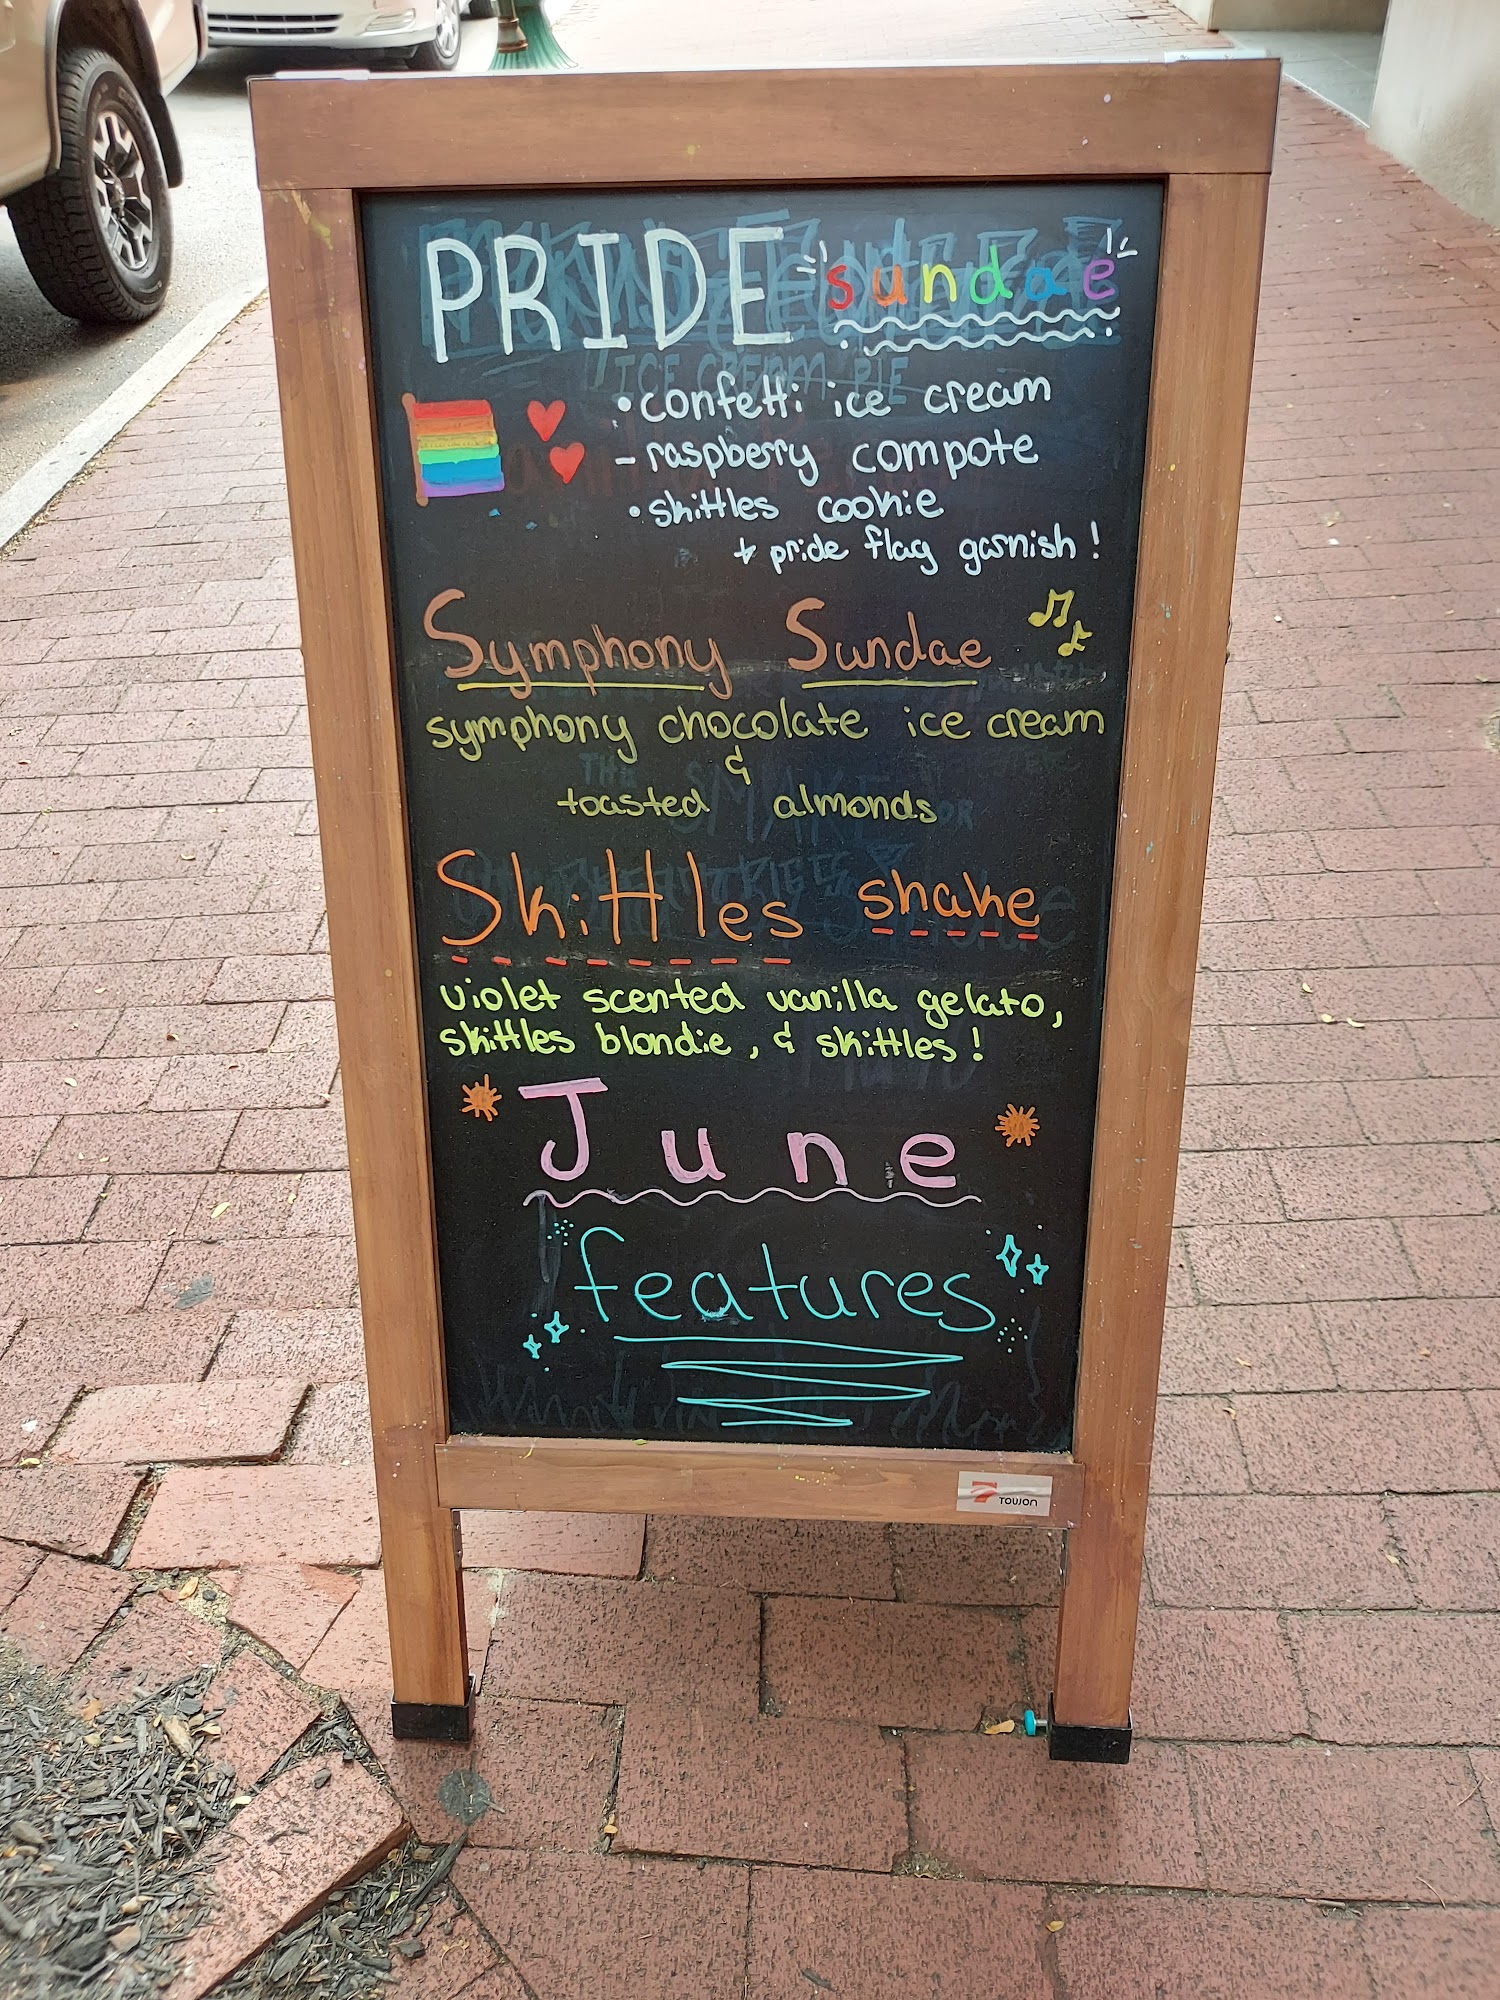 PRIDE sundae
• confetti ice cream
- raspberry compote
• skittles cookie
+ pride flag garnish!
Symphony Sundae
symphony chocolate ice cream
&
toasted almonds
Skittles shake
violet scented vanilla gelato,
skittles blondie, & skittles!
June
features
TOUJON
ICE CREAM PIE